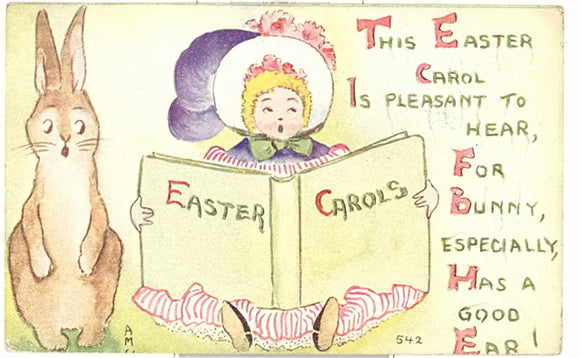 THIS EASTER
CAROL
IS PLEASANT TO
HEAR,
FOR
BUNNY,
ESPECIALLY,
HAS A
GOOD
EAR!
EASTER CAROLS
542